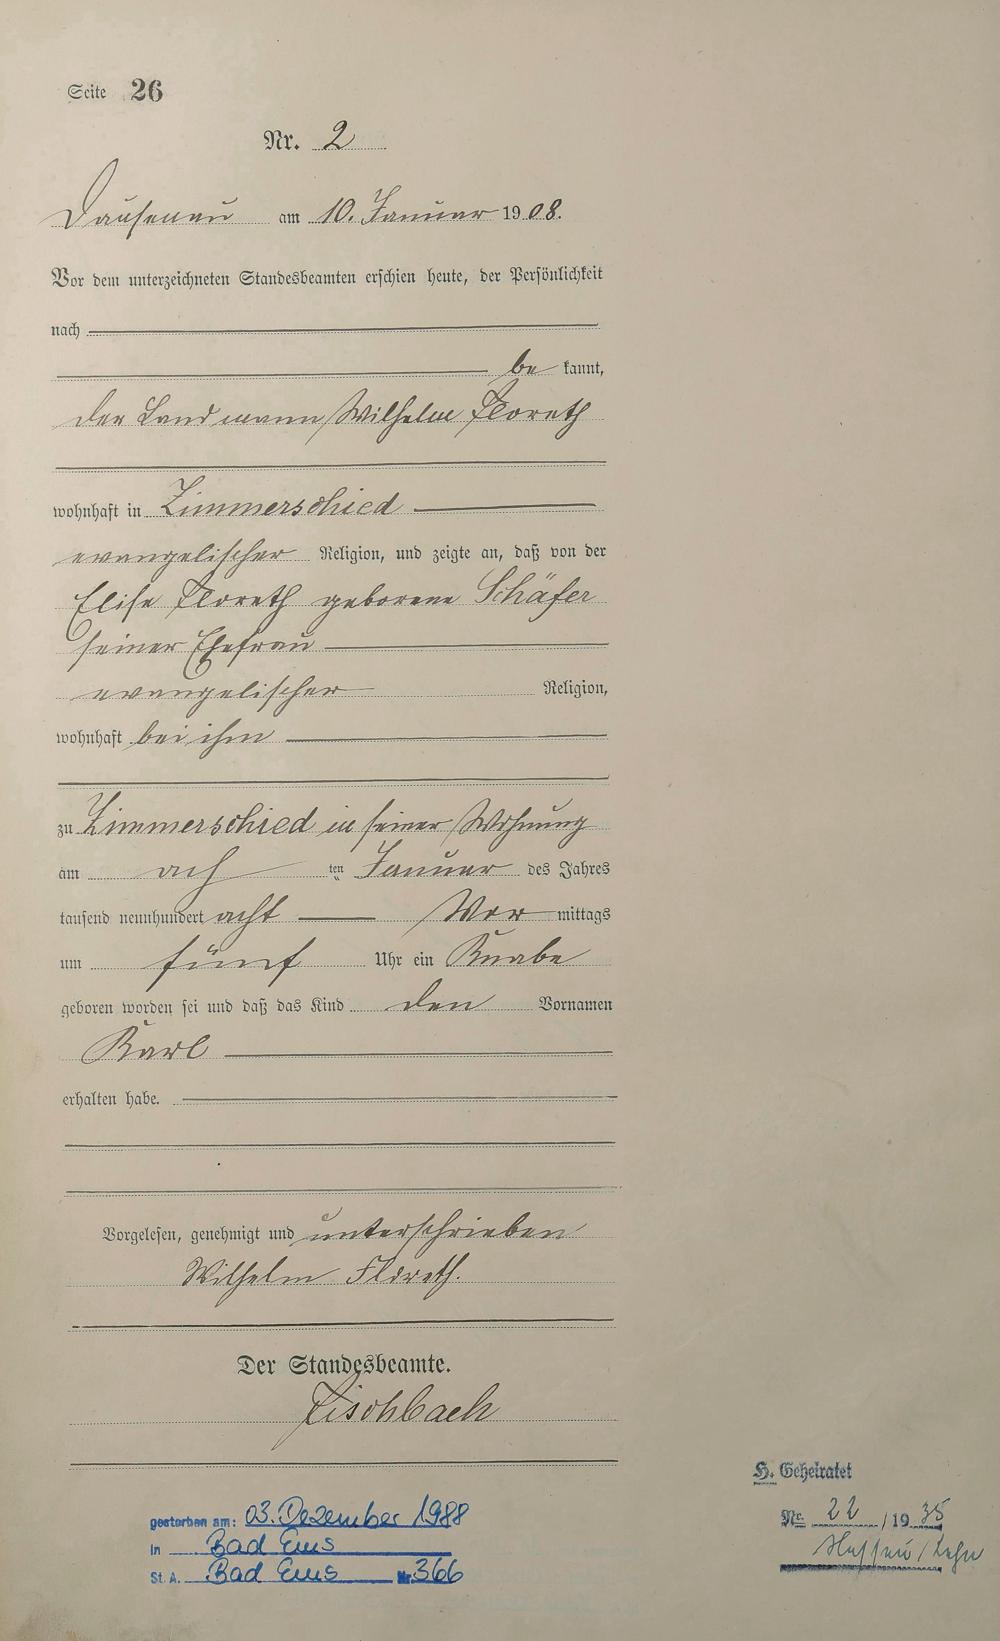 Seite 26
Nr. 2
Dausenau am 10. Januar 1908.
Vor dem unterzeichneten Standesbeamten erschien heute, der Persönlichkeit
nach
be kannt,
der Landmann Wilhelm Floreth
wohnhaft in Zimmerschied
evangelischer Religion, und zeigte an, daß von der
Elise Floreth geborene Schäfer
seiner Ehefrau
evangelischer Religion,
wohnhaft bei ihm
zu Zimmerschied in seiner Wohnung
am ach ten Januar des Jahres
tausend neunhundert acht Vor mittags
um fünf Uhr ein Knabe
geboren worden sei und daß das Kind den Vornamen
Karl
erhalten habe.
Vorgelesen, genehmigt und unterschrieben
Wilhelm Floreth.
Der Standesbeamte.
Fischbach
gestorben am: 03. Dezember 1988
in Bad Ems
St. A. Bad Ems Nr. 366
H. Geheiratet
Nr. 22 /1935